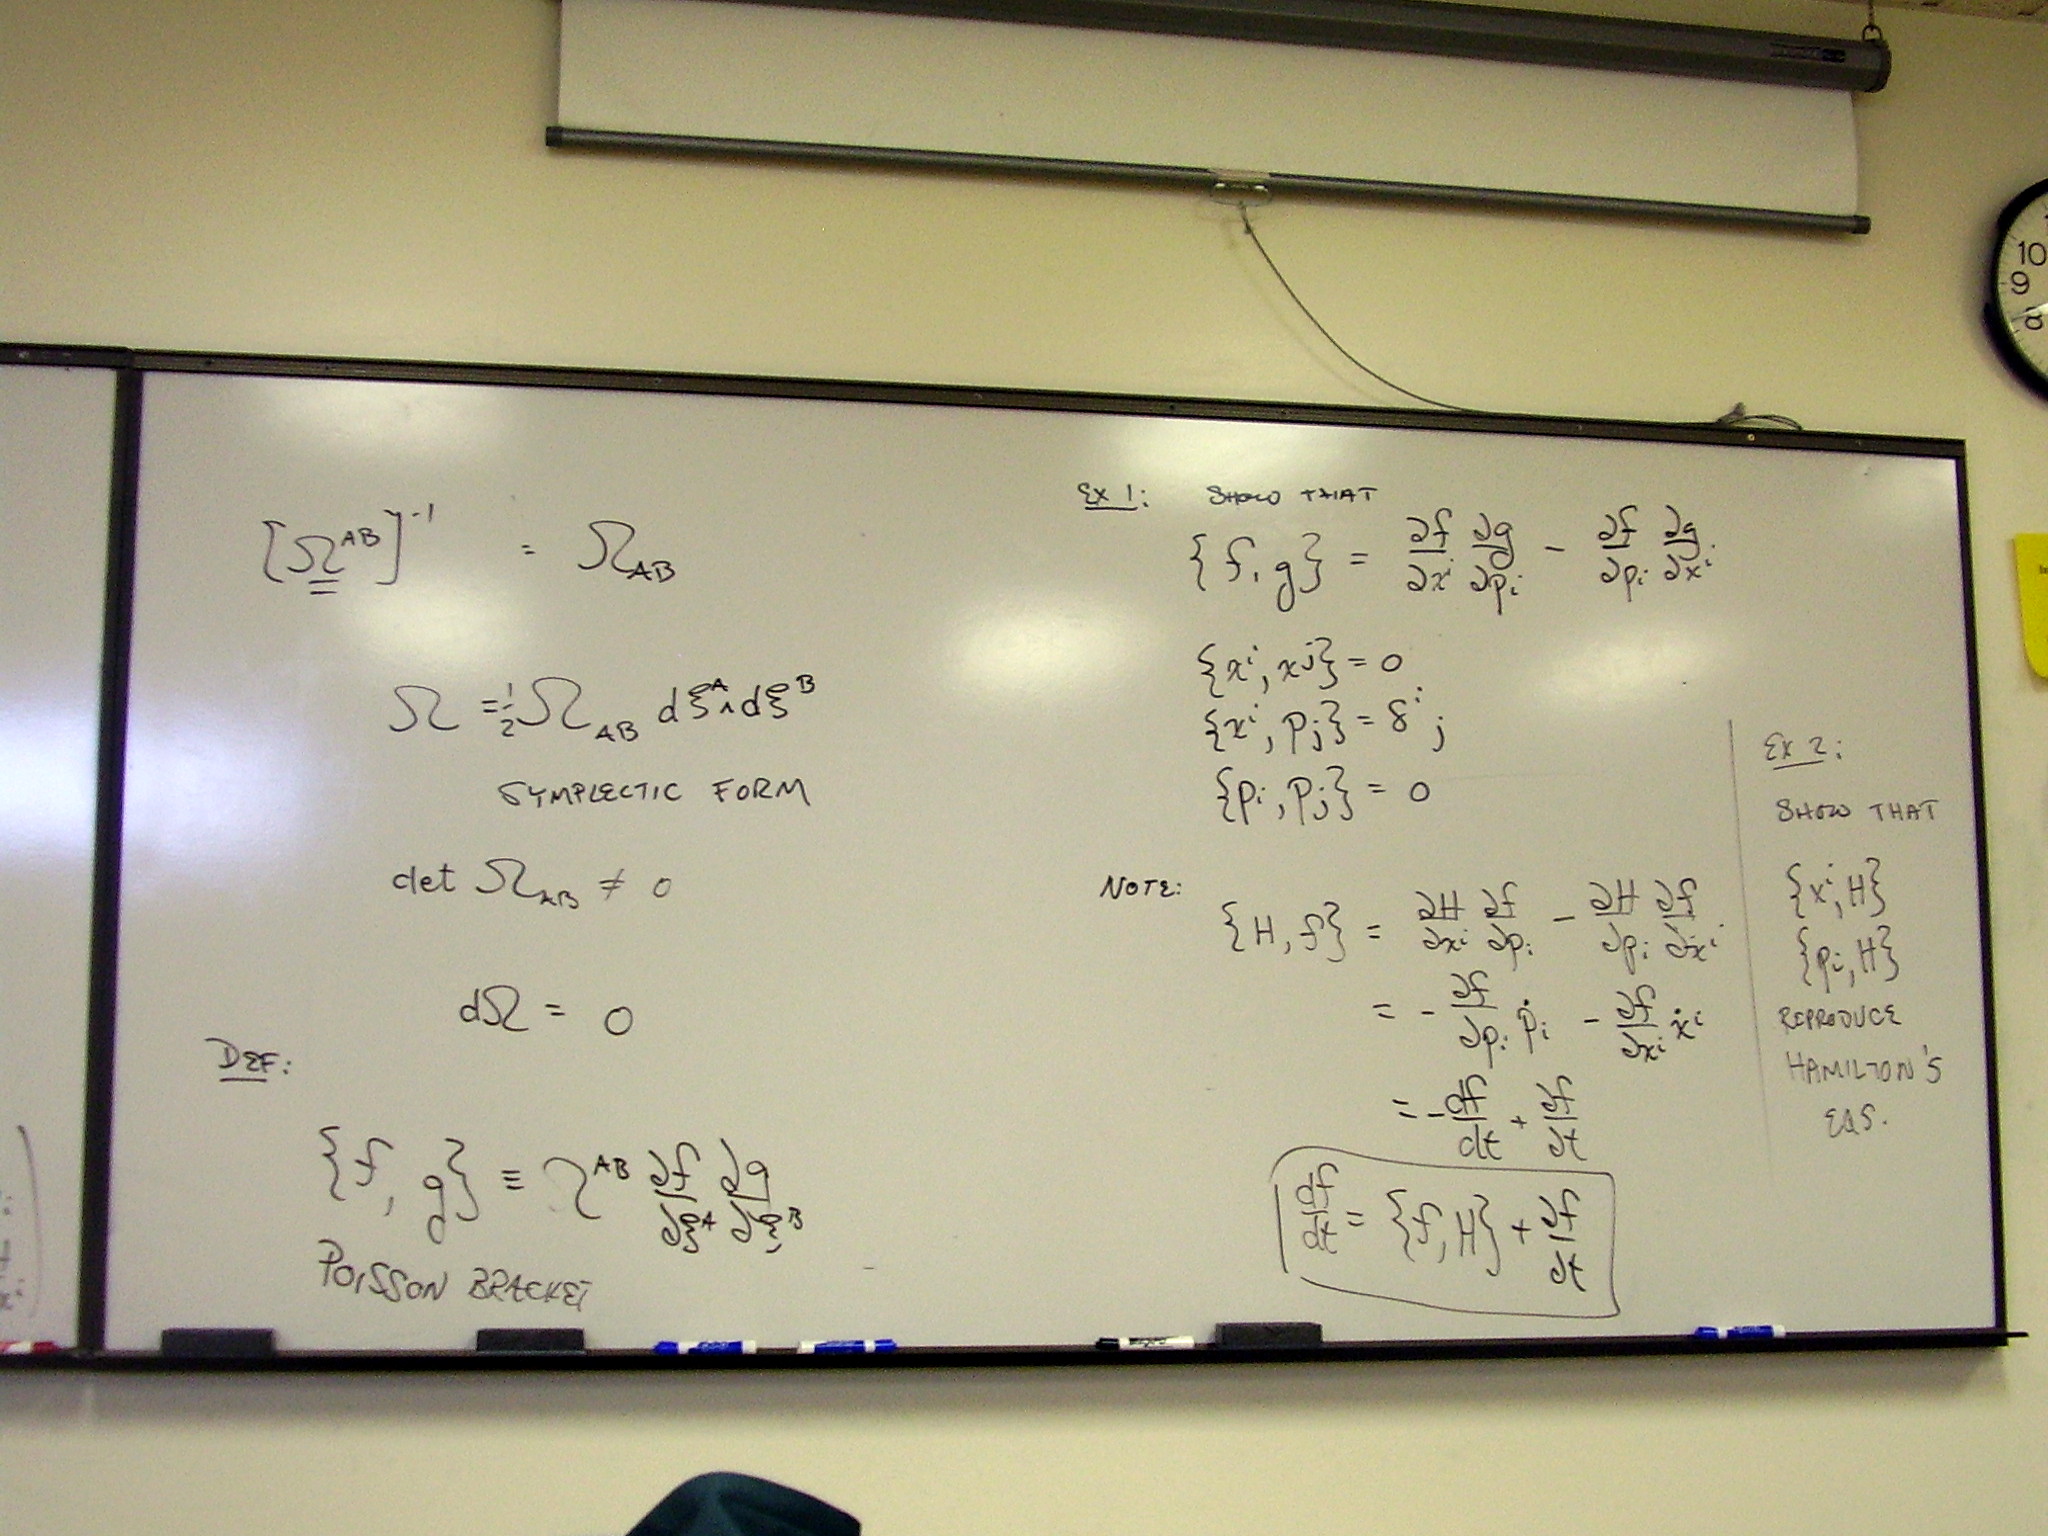 [Ω^{AB}]^{-1} = Ω_{AB}
Ω = ½ Ω_{AB} dξ^A ∧ dξ^B
SYMPLECTIC FORM
det Ω_{AB} ≠ 0
dΩ = 0
DEF:
{f, g} ≡ Ω^{AB} ∂f/∂ξ^A ∂g/∂ξ^B
POISSON BRACKET
EX 1: SHOW THAT
{f, g} = ∂f/∂x^i ∂g/∂p_i - ∂f/∂p_i ∂g/∂x^i
{x^i, x^j} = 0
{x^i, p_j} = δ^i_j
{p_i, p_j} = 0
NOTE:
{H, f} = ∂H/∂x^i ∂f/∂p_i - ∂H/∂p_i ∂f/∂x^i
= - ∂f/∂p_i ṗ_i - ∂f/∂x^i ẋ^i
= - df/dt + ∂f/∂t
df/dt = {f, H} + ∂f/∂t
EX 2:
SHOW THAT
{x^i, H}
{p_i, H}
REPRODUCE
HAMILTON'S
EQS.
10
9
8